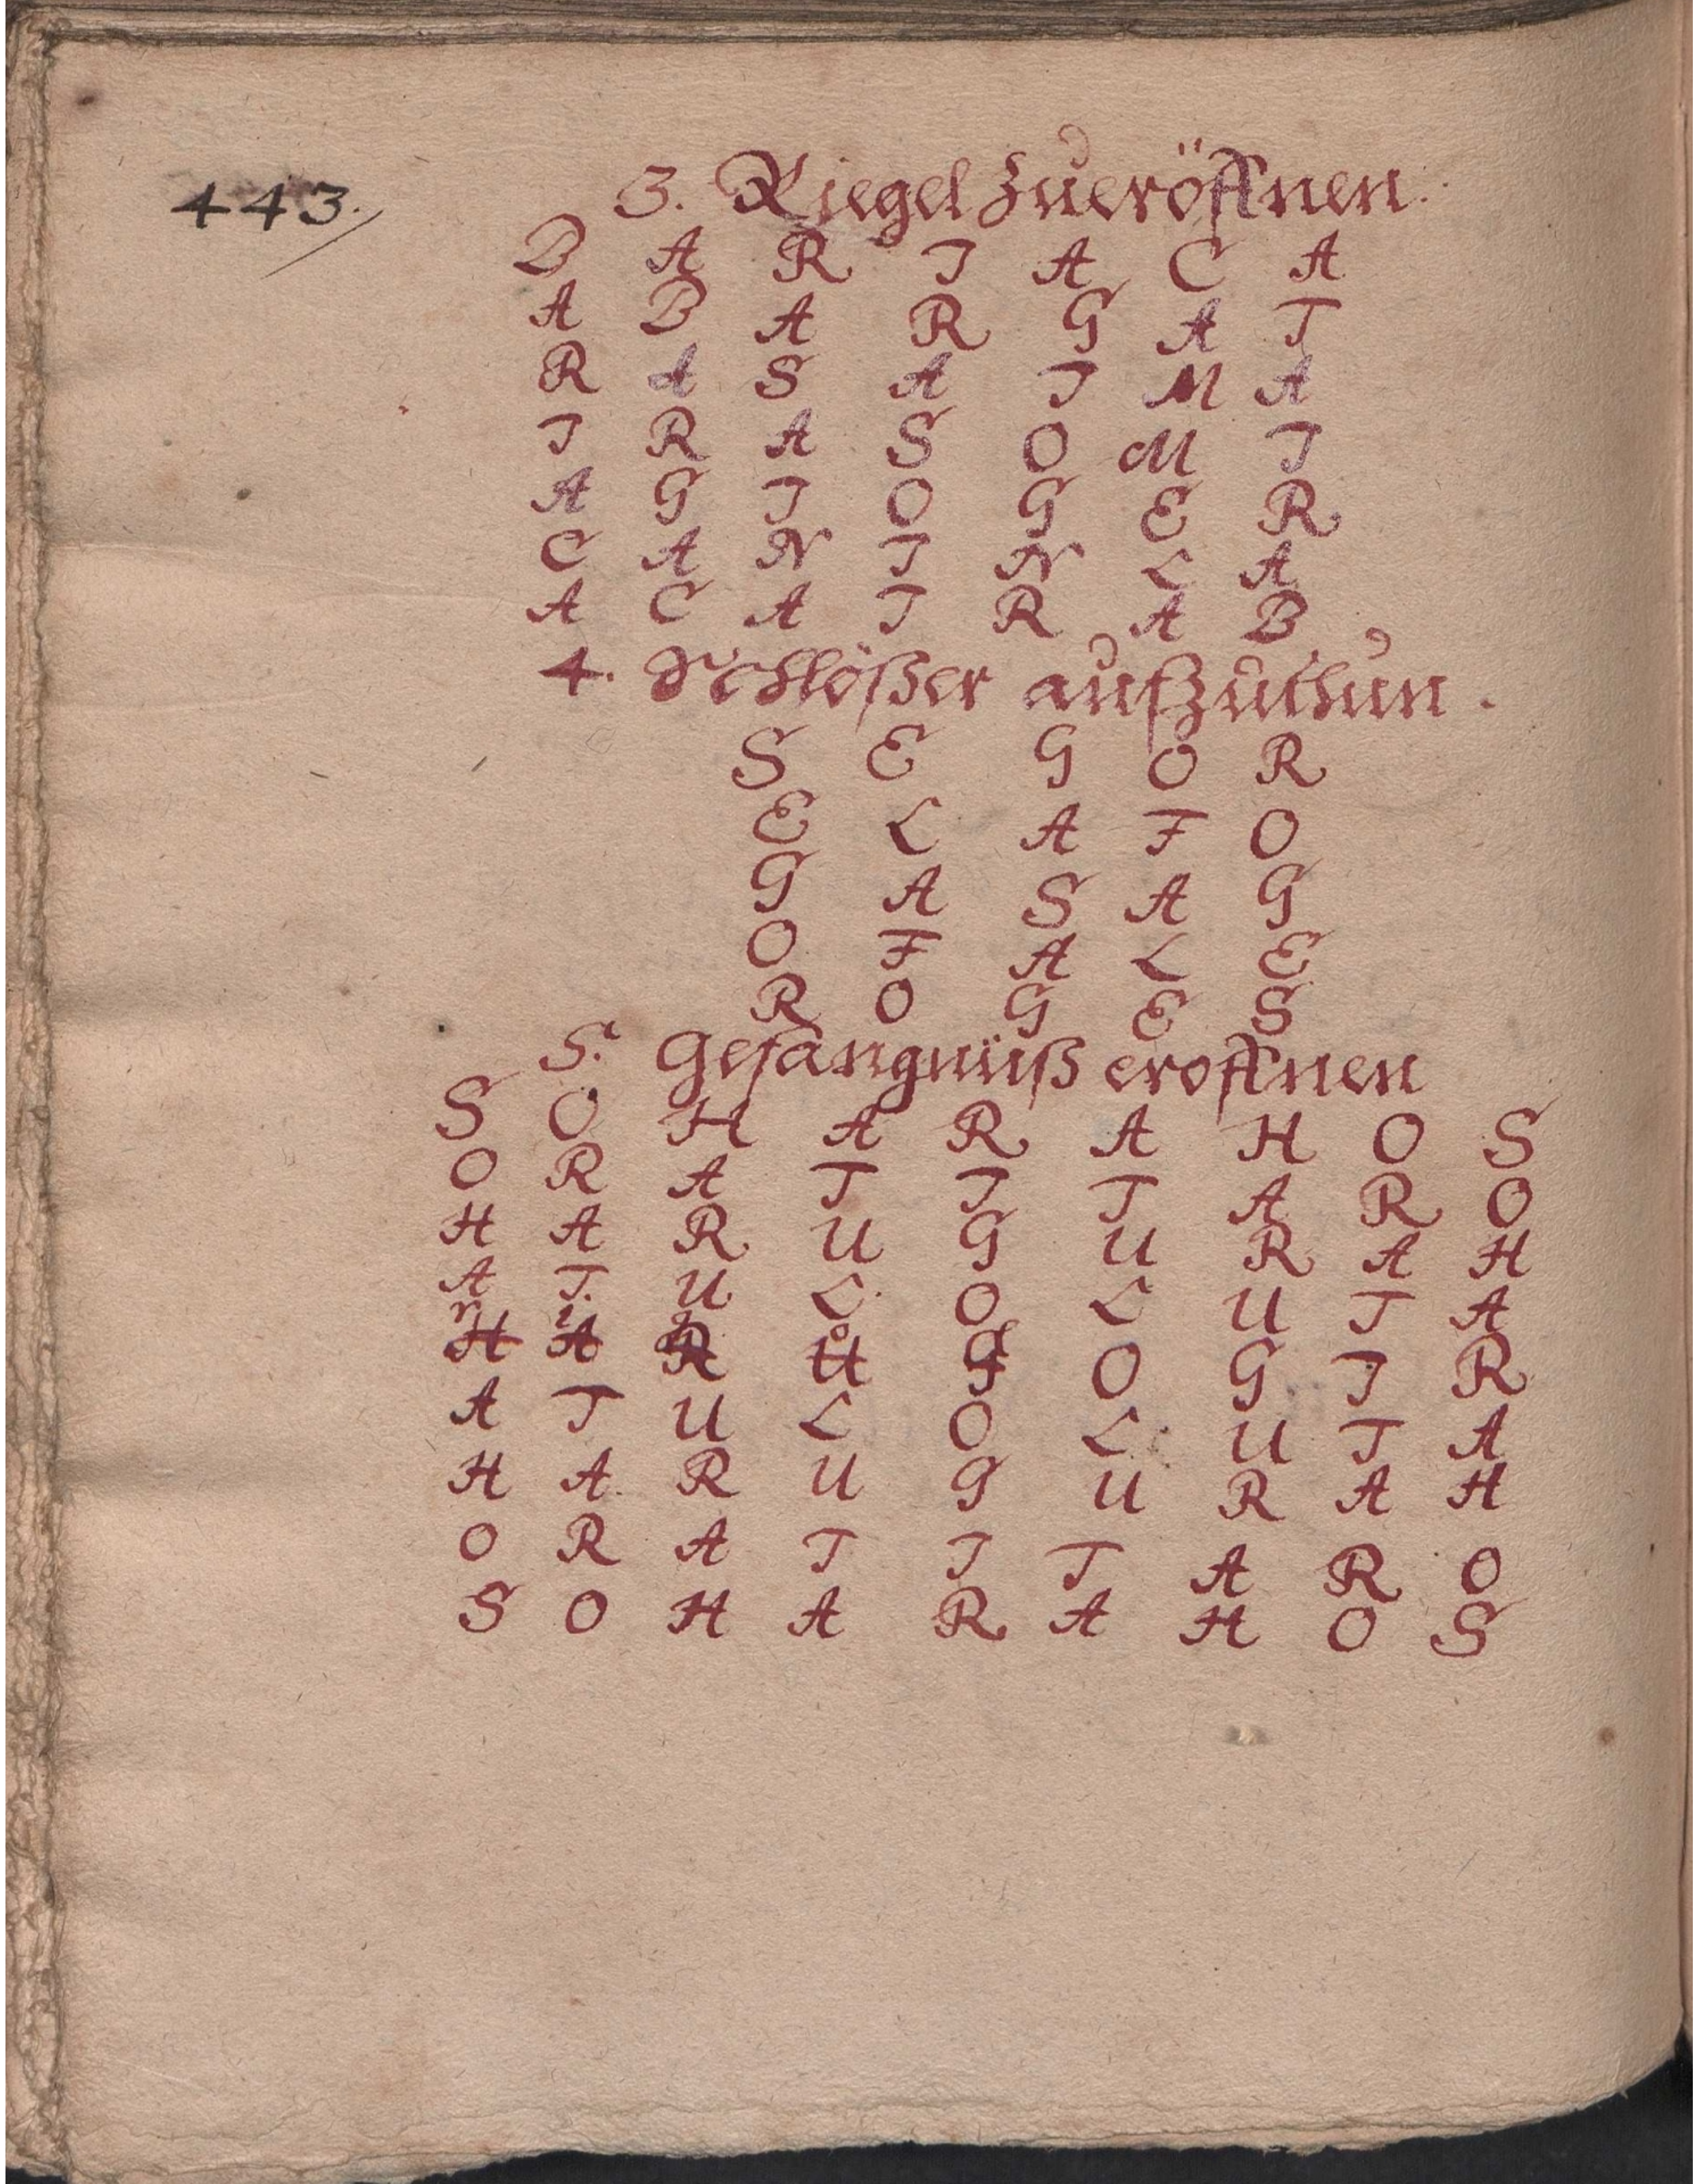 443.
3. Riegel zueröffnen.
B A R I A C A
A B A R G A T
R A S A I M A
I R A S O M I
A G I O G E R
C A N I N L A
A C A I R A B
4. Schlößer aufzuthun.
S E G O R
E L A F O
G A S A G
O F A L E
R O G E S
5. Gefängnüß eröffnen
S O H A R A H O S
O R A T I T A R O
H A R U G U R A H
A T U L O L U T A
r i g o
H A R U G O G I R
A T U L O L U T A
H A R U G U R A H
O R A T I T A R O
S O H A R A H O S